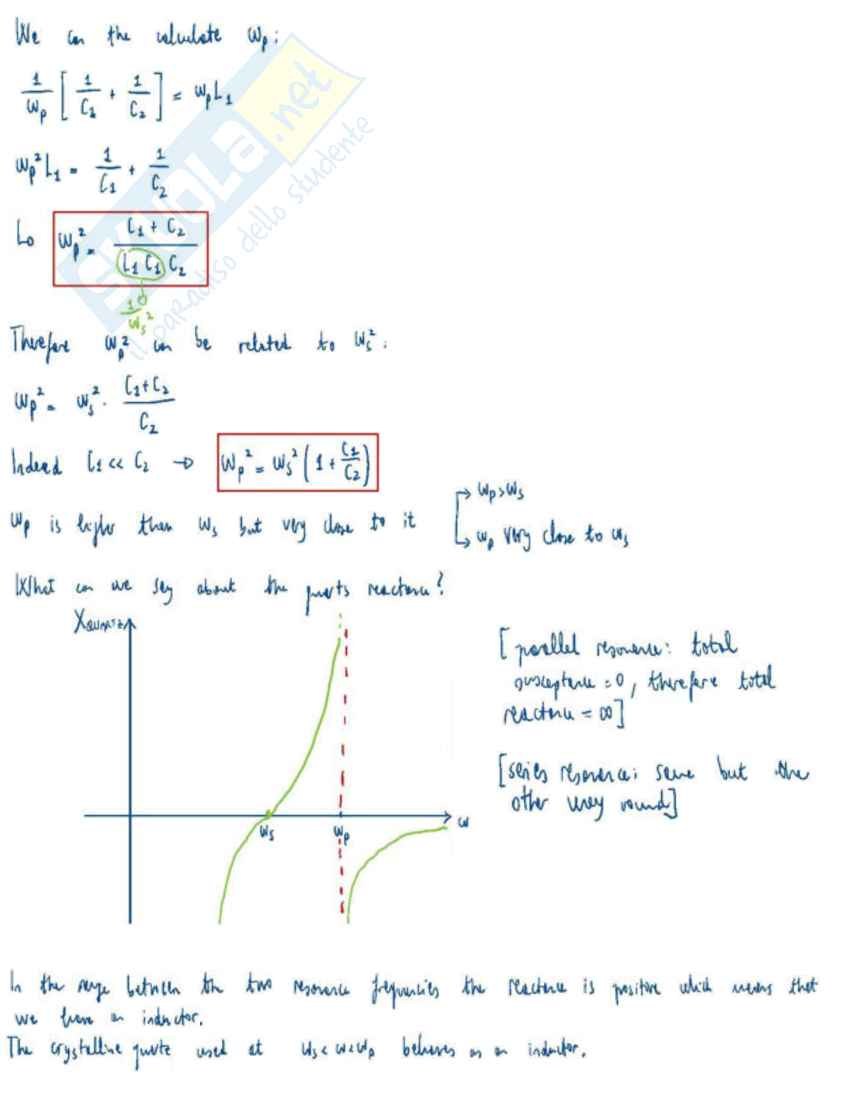 We can the calculate ωp:
1/ωp [ 1/C1 + 1/C2 ] = ωp L1
ωp² L1 = 1/C1 + 1/C2
Lo ωp² = (C1 + C2)/(L1 C1 C2)
1/ωs²
Therefore ωp² can be related to ωs²:
ωp² = ωs² · (C1+C2)/C2
Indeed C1 << C2 → ωp² = ωs² (1 + C1/C2)
ωp is higher than ωs but very close to it
ωp>ωs
ωp very close to ωs
What can we say about the quartz reactance?
XQUARTZ
[parallel resonance: total
susceptance = 0, therefore total
reactance = ∞]
[series resonance: same but the
other way round]
ωs
ωp
ω
In the range between the two resonance frequencies the reactance is positive which means that
we have an inductor.
The crystalline quartz used at ωs < ω < ωp behaves as an inductor.
SKUOLA.net
il paradiso dello studente